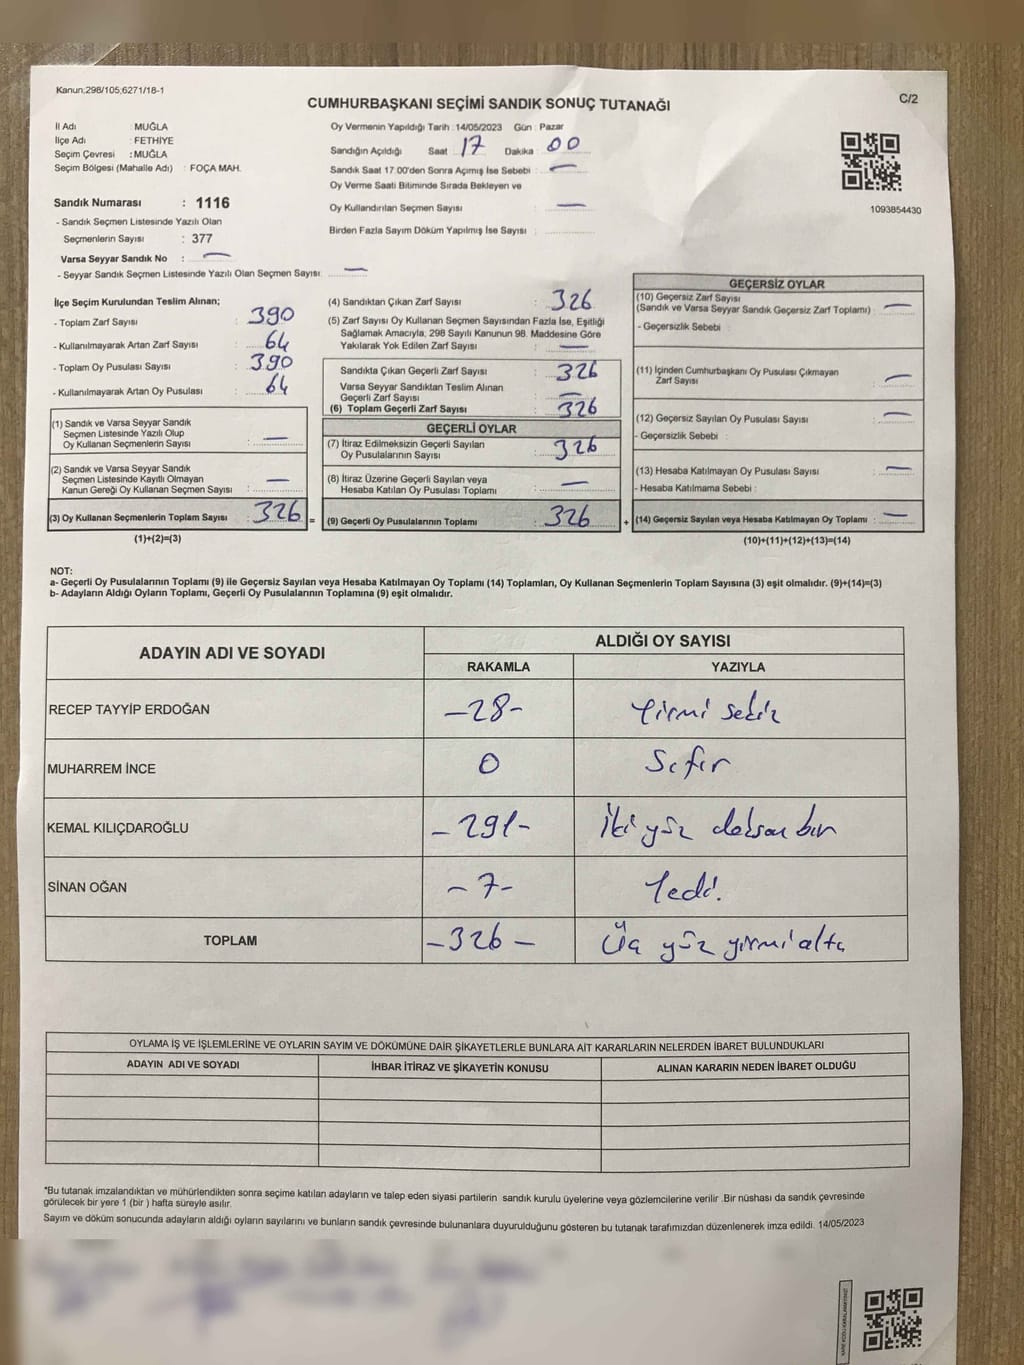 Kanun;298/105;6271/18-1
C/2
CUMHURBAŞKANI SEÇİMİ SANDIK SONUÇ TUTANAĞI
İl Adı MUĞLA
İlçe Adı : FETHİYE
Seçim Çevresi : MUĞLA
Seçim Bölgesi (Mahalle Adı) : FOÇA MAH.
Sandık Numarası : 1116
- Sandık Seçmen Listesinde Yazılı Olan
Seçmenlerin Sayısı : 377
Varsa Seyyar Sandık No : —
- Seyyar Sandık Seçmen Listesinde Yazılı Olan Seçmen Sayısı: —
Oy Vermenin Yapıldığı Tarih :14/05/2023 Gün : Pazar
Sandığın Açıldığı Saat 17 Dakika : 00
Sandık Saat 17.00'den Sonra Açımış İse Sebebi : —
Oy Verme Saati Bitiminde Sırada Bekleyen ve
Oy Kullandırılan Seçmen Sayısı : —
Birden Fazla Sayım Döküm Yapılmış İse Sayısı :
1093854430
İlçe Seçim Kurulundan Teslim Alınan;
- Toplam Zarf Sayısı : 390
- Kullanılmayarak Artan Zarf Sayısı : 64
- Toplam Oy Pusulası Sayısı : 390
- Kullanılmayarak Artan Oy Pusulası : 64
(1) Sandık ve Varsa Seyyar Sandık
Seçmen Listesinde Yazılı Olup
Oy Kullanan Seçmenlerin Sayısı : —
(2) Sandık ve Varsa Seyyar Sandık
Seçmen Listesinde Kayıtlı Olmayan
Kanun Gereği Oy Kullanan Seçmen Sayısı : —
(3) Oy Kullanan Seçmenlerin Toplam Sayısı : 326 =
(1)+(2)=(3)
(4) Sandıktan Çıkan Zarf Sayısı : 326
(5) Zarf Sayısı Oy Kullanan Seçmen Sayısından Fazla İse, Eşitliği
Sağlamak Amacıyla, 298 Sayılı Kanunun 98. Maddesine Göre
Yakılarak Yok Edilen Zarf Sayısı : —
Sandıkta Çıkan Geçerli Zarf Sayısı : 326
Varsa Seyyar Sandıktan Teslim Alınan
Geçerli Zarf Sayısı : —
(6) Toplam Geçerli Zarf Sayısı : 326
GEÇERLİ OYLAR
(7) İtiraz Edilmeksizin Geçerli Sayılan
Oy Pusulalarının Sayısı : 326
(8) İtiraz Üzerine Geçerli Sayılan veya
Hesaba Katılan Oy Pusulası Toplamı : —
(9) Geçerli Oy Pusulalarının Toplamı : 326 +
GEÇERSİZ OYLAR
(10) Geçersiz Zarf Sayısı
(Sandık ve Varsa Seyyar Sandık Geçersiz Zarf Toplamı) : —
- Geçersizlik Sebebi :
(11) İçinden Cumhurbaşkanı Oy Pusulası Çıkmayan
Zarf Sayısı : —
(12) Geçersiz Sayılan Oy Pusulası Sayısı : —
- Geçersizlik Sebebi :
(13) Hesaba Katılmayan Oy Pusulası Sayısı : —
- Hesaba Katılmama Sebebi :
(14) Geçersiz Sayılan veya Hesaba Katılmayan Oy Toplamı : —
(10)+(11)+(12)+(13)=(14)
NOT:
a- Geçerli Oy Pusulalarının Toplamı (9) ile Geçersiz Sayılan veya Hesaba Katılmayan Oy Toplamı (14) Toplamları, Oy Kullanan Seçmenlerin Toplam Sayısına (3) eşit olmalıdır. (9)+(14)=(3)
b- Adayların Aldığı Oyların Toplamı, Geçerli Oy Pusulalarının Toplamına (9) eşit olmalıdır.
ADAYIN ADI VE SOYADI ALDIĞI OY SAYISI
RAKAMLA YAZIYLA
RECEP TAYYİP ERDOĞAN -28- Yirmi sekiz
MUHARREM İNCE 0 Sıfır
KEMAL KILIÇDAROĞLU -291- İki yüz doksan bir
SİNAN OĞAN -7- Yedi.
TOPLAM -326- Üç yüz yirmi altı
OYLAMA İŞ VE İŞLEMLERİNE VE OYLARIN SAYIM VE DÖKÜMÜNE DAİR ŞİKAYETLERLE BUNLARA AİT KARARLARIN NELERDEN İBARET BULUNDUKLARI
ADAYIN ADI VE SOYADI İHBAR İTİRAZ VE ŞİKAYETİN KONUSU ALINAN KARARIN NEDEN İBARET OLDUĞU
*Bu tutanak imzalandıktan ve mühürlendikten sonra seçime katılan adayların ve talep eden siyasi partilerin sandık kurulu üyelerine veya gözlemcilerine verilir .Bir nüshası da sandık çevresinde
görülecek bir yere 1 (bir ) hafta süreyle asılır.
Sayım ve döküm sonucunda adayların aldığı oyların sayılarını ve bunların sandık çevresinde bulunanlara duyurulduğunu gösteren bu tutanak tarafımızdan düzenlenerek imza edildi. 14/05/2023